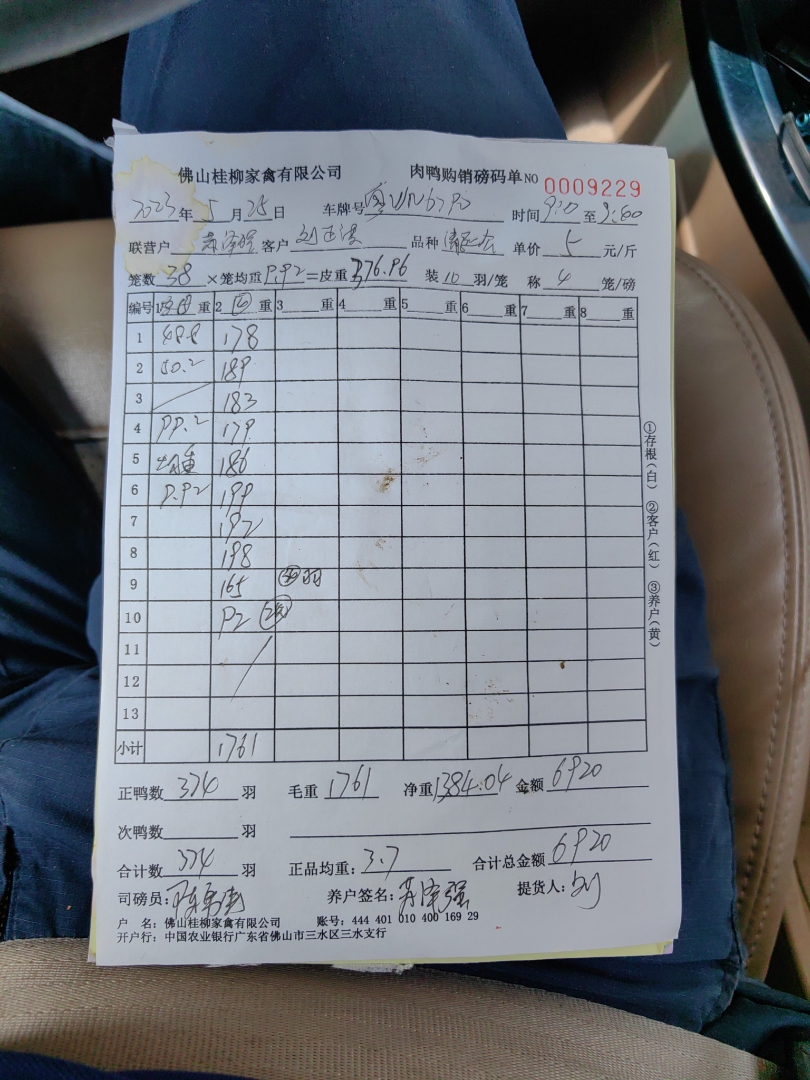 佛山桂柳家禽有限公司 肉鸭购销磅码单 NO 0009229
2023年5月25日 车牌号 时间 9:10 至 9:40
联营户 客户 品种 单价 5 元/斤
笼数 38 ×笼均重 9.92 =皮重 376.96 装 10 羽/笼 称 4 笼/磅
编号 1 重 2 重 3 重 4 重 5 重 6 重 7 重 8 重
1 49.8 178
2 50.2 189
3 183
4 99.2 179
5 均重 186
6 9.92 199
7 192
8 198
9 165 羽
10 92
11
12
13
小计 1761
正鸭数 374 羽 毛重 1761 净重 1384.04 金额 6920
次鸭数 羽
合计数 374 羽 正品均重: 3.7 合计总金额 6920
司磅员: 养户签名: 提货人: 刘
户 名: 佛山桂柳家禽有限公司 账号: 444 401 010 400 169 29
开户行: 中国农业银行广东省佛山市三水区三水支行
①存根(白) ②客户(红) ③养户(黄)